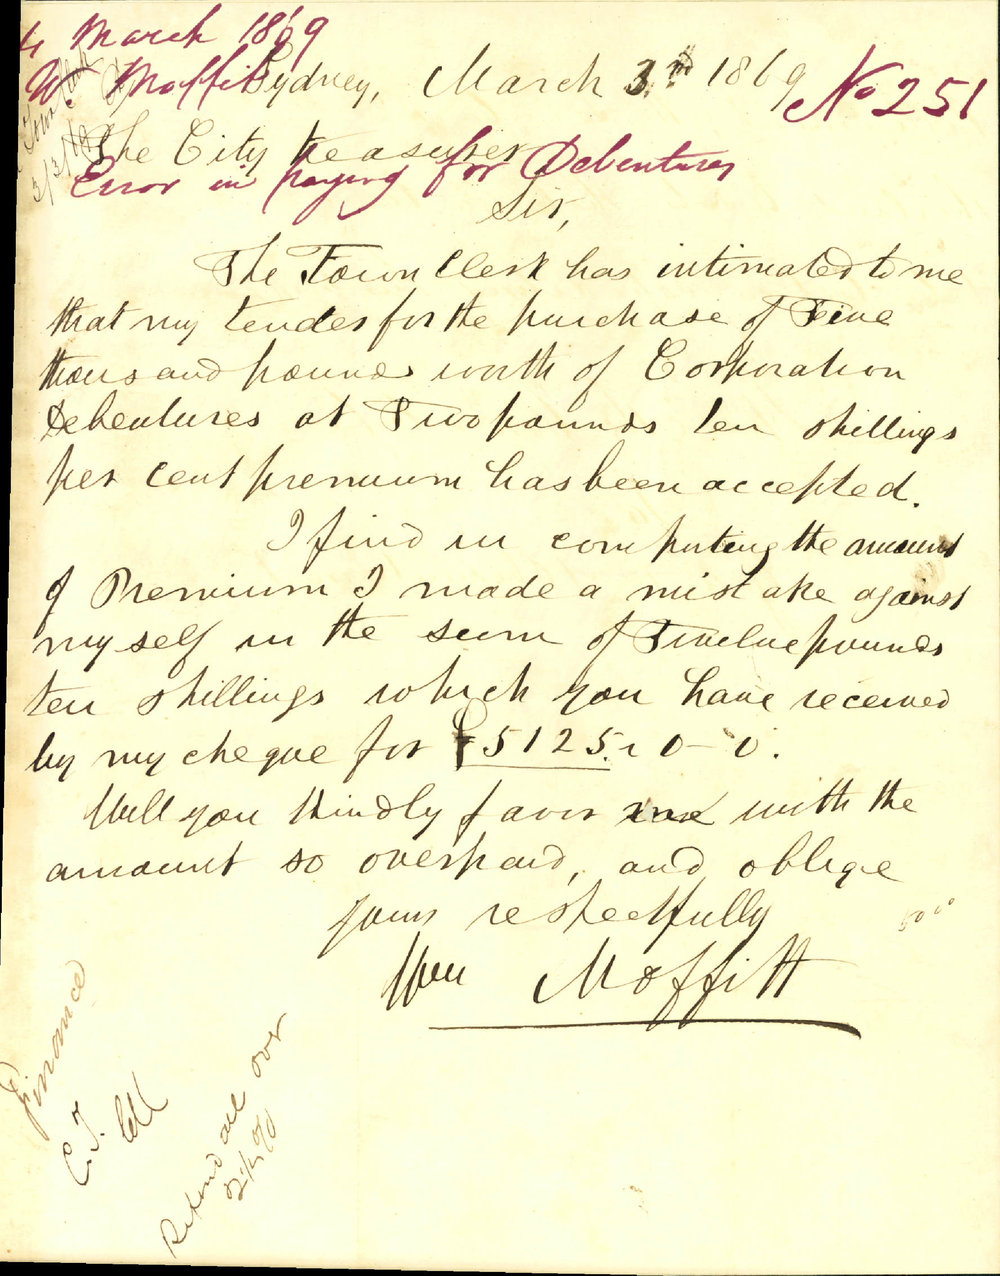 4 March 1869
Wm Moffitt
Sydney, March 3rd 1869
No 251
Town Clerk
3/3/69
The City Treasurer,
Error in paying for Debentures
Sir,
The Town Clerk has intimated to me
that my tender for the purchase of Five
thousand pounds worth of Corporation
Debentures at Two pounds ten shillings
per cent premium has been accepted.
I find in computing the amount
of Premium I made a mistake against
myself in the sum of Twelve pounds
ten shillings which you have received
by my cheque for £5125..0-0.
Will you kindly favor me with the
amount so overpaid, and oblige
yours respectfully
Wm Moffitt
Finance
C.T.
Refund all over
2½ %